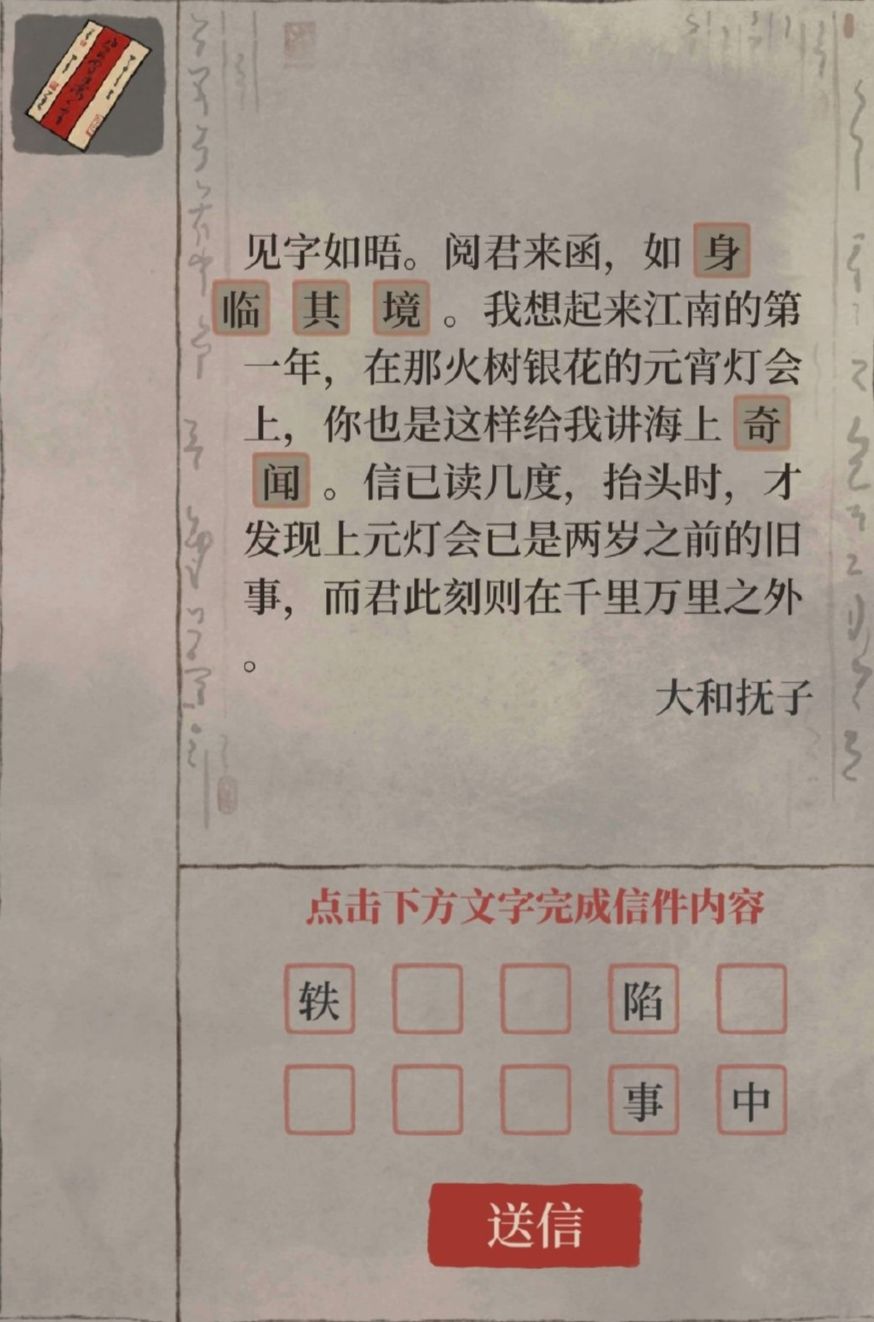 见字如晤。阅君来函，如身
临其境。我想起来江南的第
一年，在那火树银花的元宵灯会
上，你也是这样给我讲海上奇
闻。信已读几度，抬头时，才
发现上元灯会已是两岁之前的旧
事，而君此刻则在千里万里之外
。
大和抚子
点击下方文字完成信件内容
轶 陷
事 中
送信